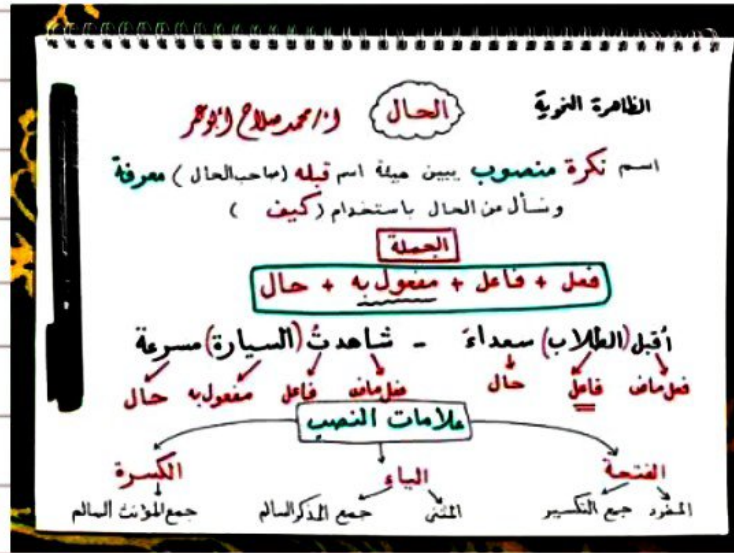 الظاهرة النحوية الحال ا/محمد صلاح ابو عمر
اسم نكرة منصوب يبين هيئة اسم قبله (صاحب الحال) معرفة
ونسأل عن الحال باستخدام (كيف)
الجملة
فعل + فاعل + مفعول به + حال
أقبل (الطلاب) سعداءَ - شاهدتُ (السيارة) مسرعة
فعل ماض فاعل حال فعل ماض فاعل مفعول به حال
علامات النصب
الفتحة الياء الكسرة
المفرد جمع التكسير المثنى جمع المذكر السالم جمع المؤنث السالم